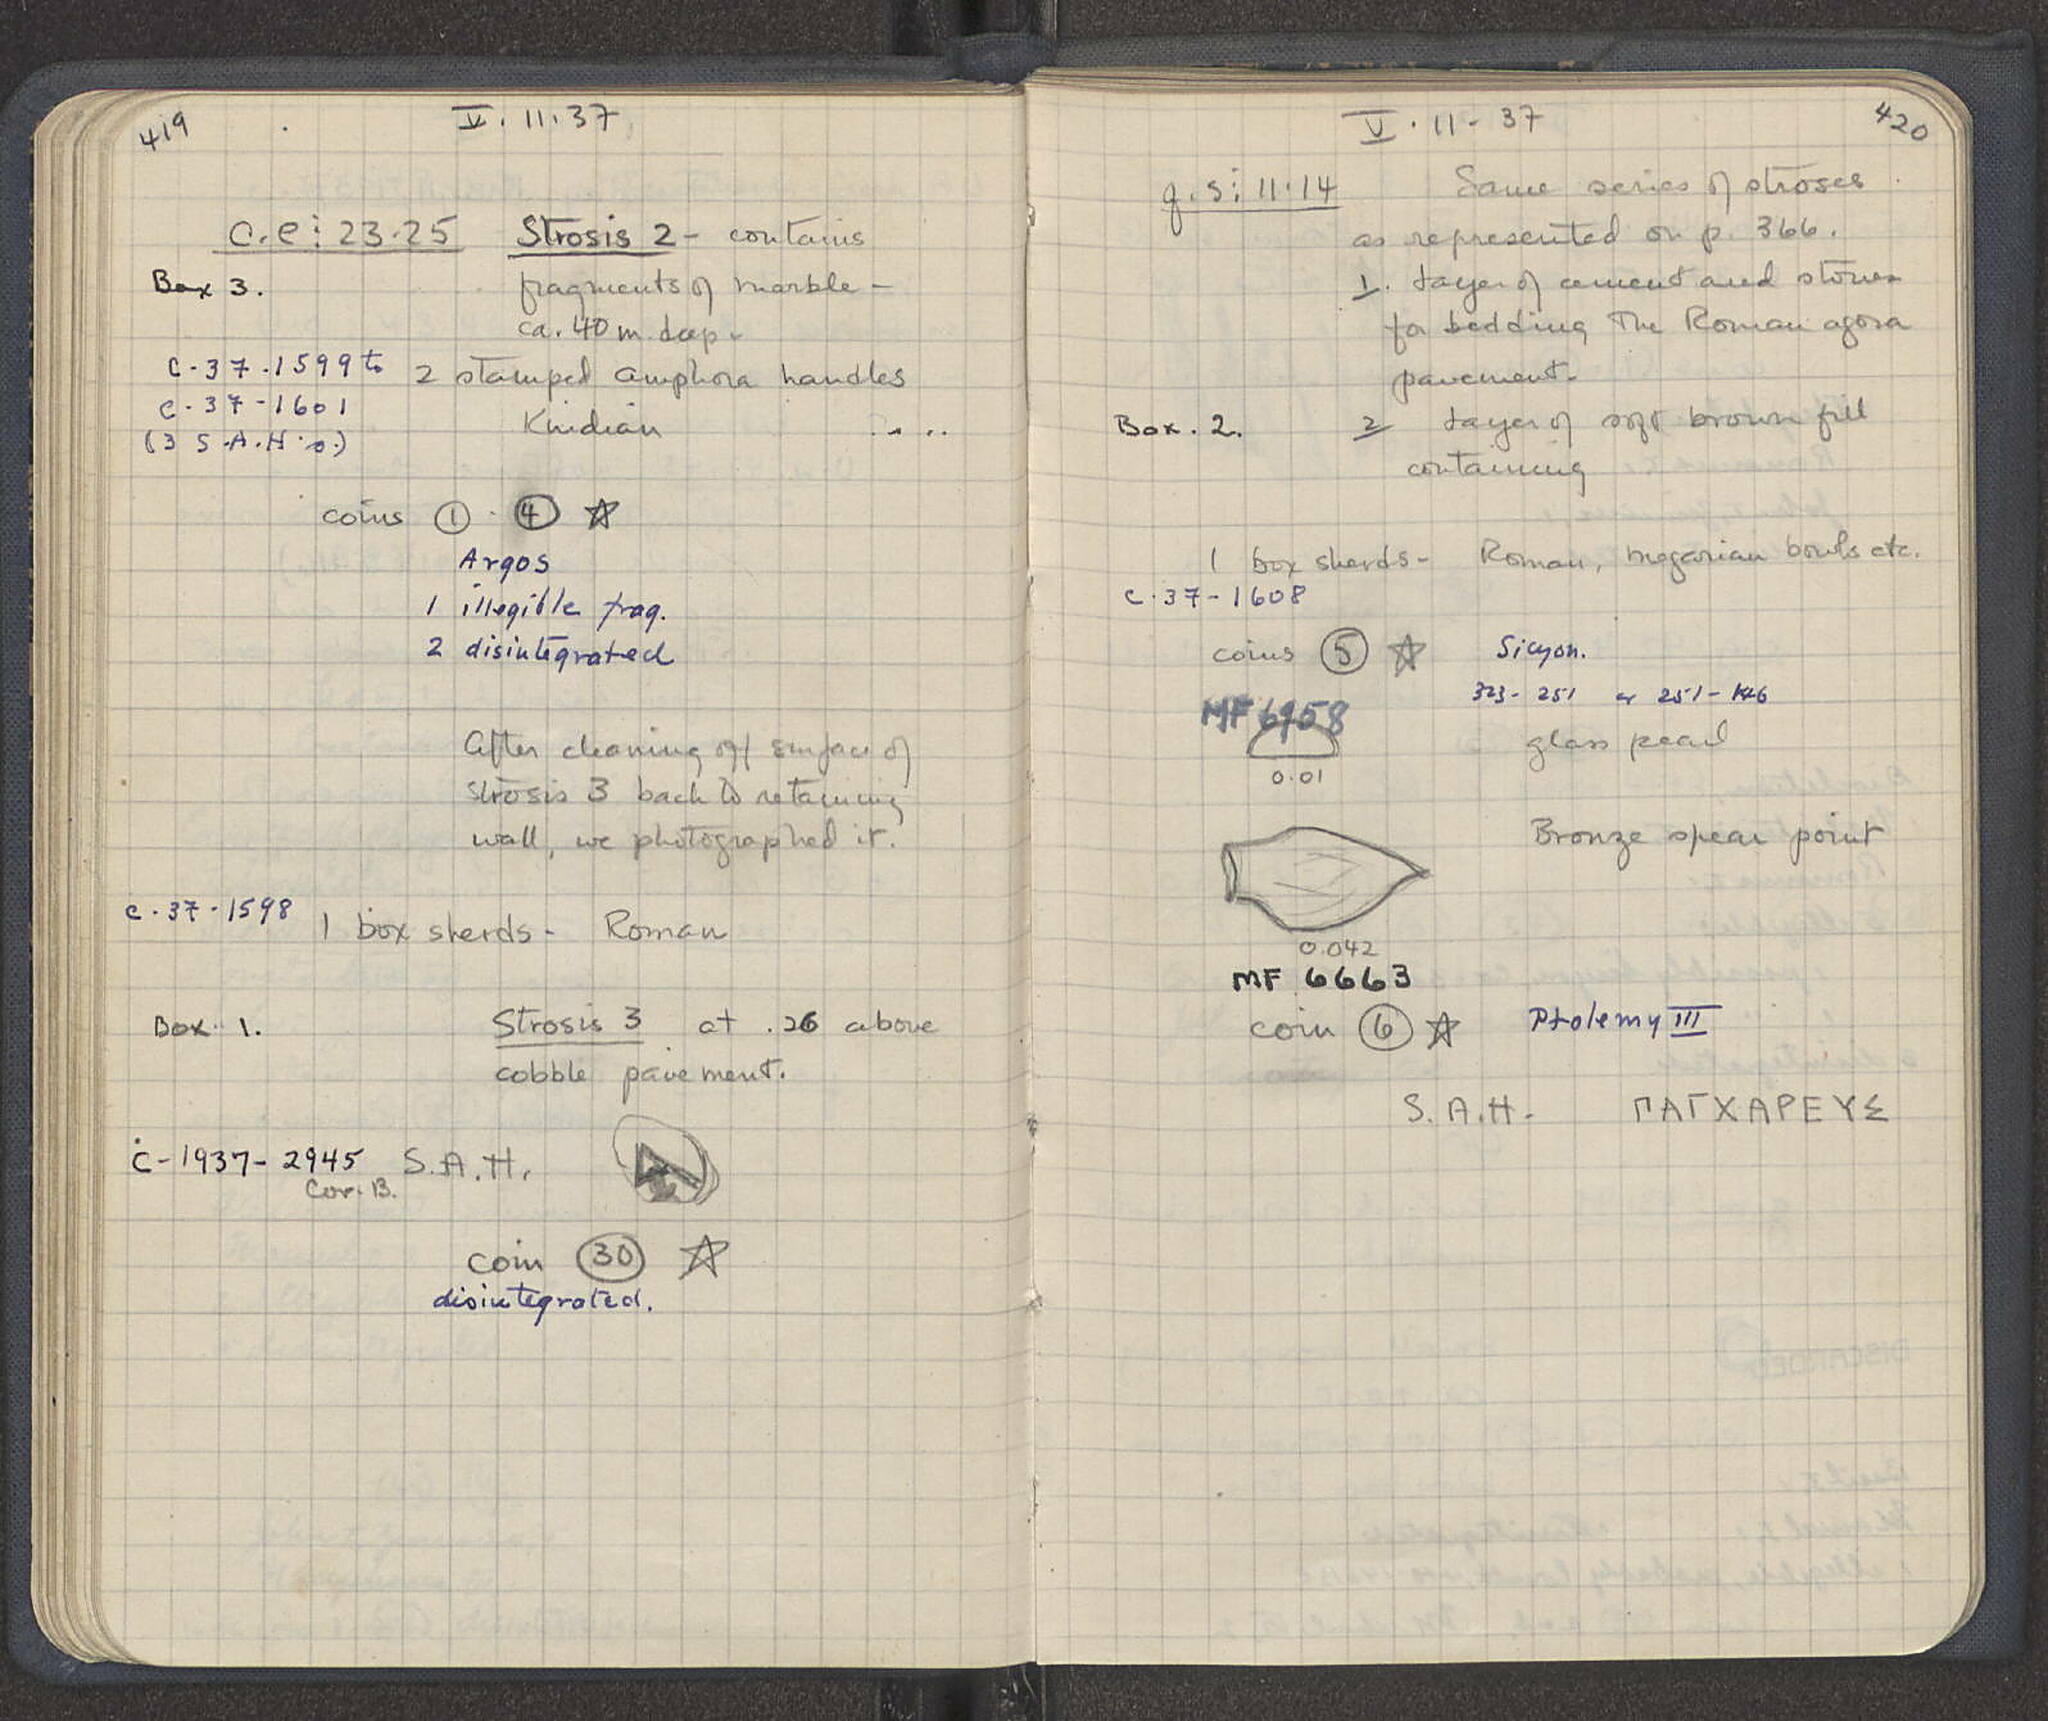 419
V. 11. 37
c.e: 23-25 Strosis 2 - contains
Box 3. fragments of marble -
ca. 40 m. deep -
C-37-1599 to 2 stamped amphora handles
C-37-1601 Knidian
(3 S.A.H.s.)
coins 1 - 4
Argos
1 illegible frag.
2 disintegrated
After cleaning off surface of
Strosis 3 back to retaining
wall, we photographed it.
C-37-1598 1 box sherds - Roman
Box 1. Strosis 3 at .26 above
cobble pavement.
C-1937-2945 S.A.H.
Cor. B.
coin 30
disintegrated.
V. 11 - 37
420
q.s: 11-14 Same series of stroses
as represented on p. 366.
1. Layer of cement and stones
for bedding the Roman agora
pavement.
Box. 2. 2 Layer of soft brown fill
containing
1 box sherds - Roman, megarian bowls etc.
C-37-1608
coins 5 Sicyon.
323-251 or 251-146
MF 6958
glass pearl
0.01
Bronze spear point
0.042
MF 6663
coin 6 Ptolemy III
S.A.H. - ΠΑΓΧΑΡΕΥΣ